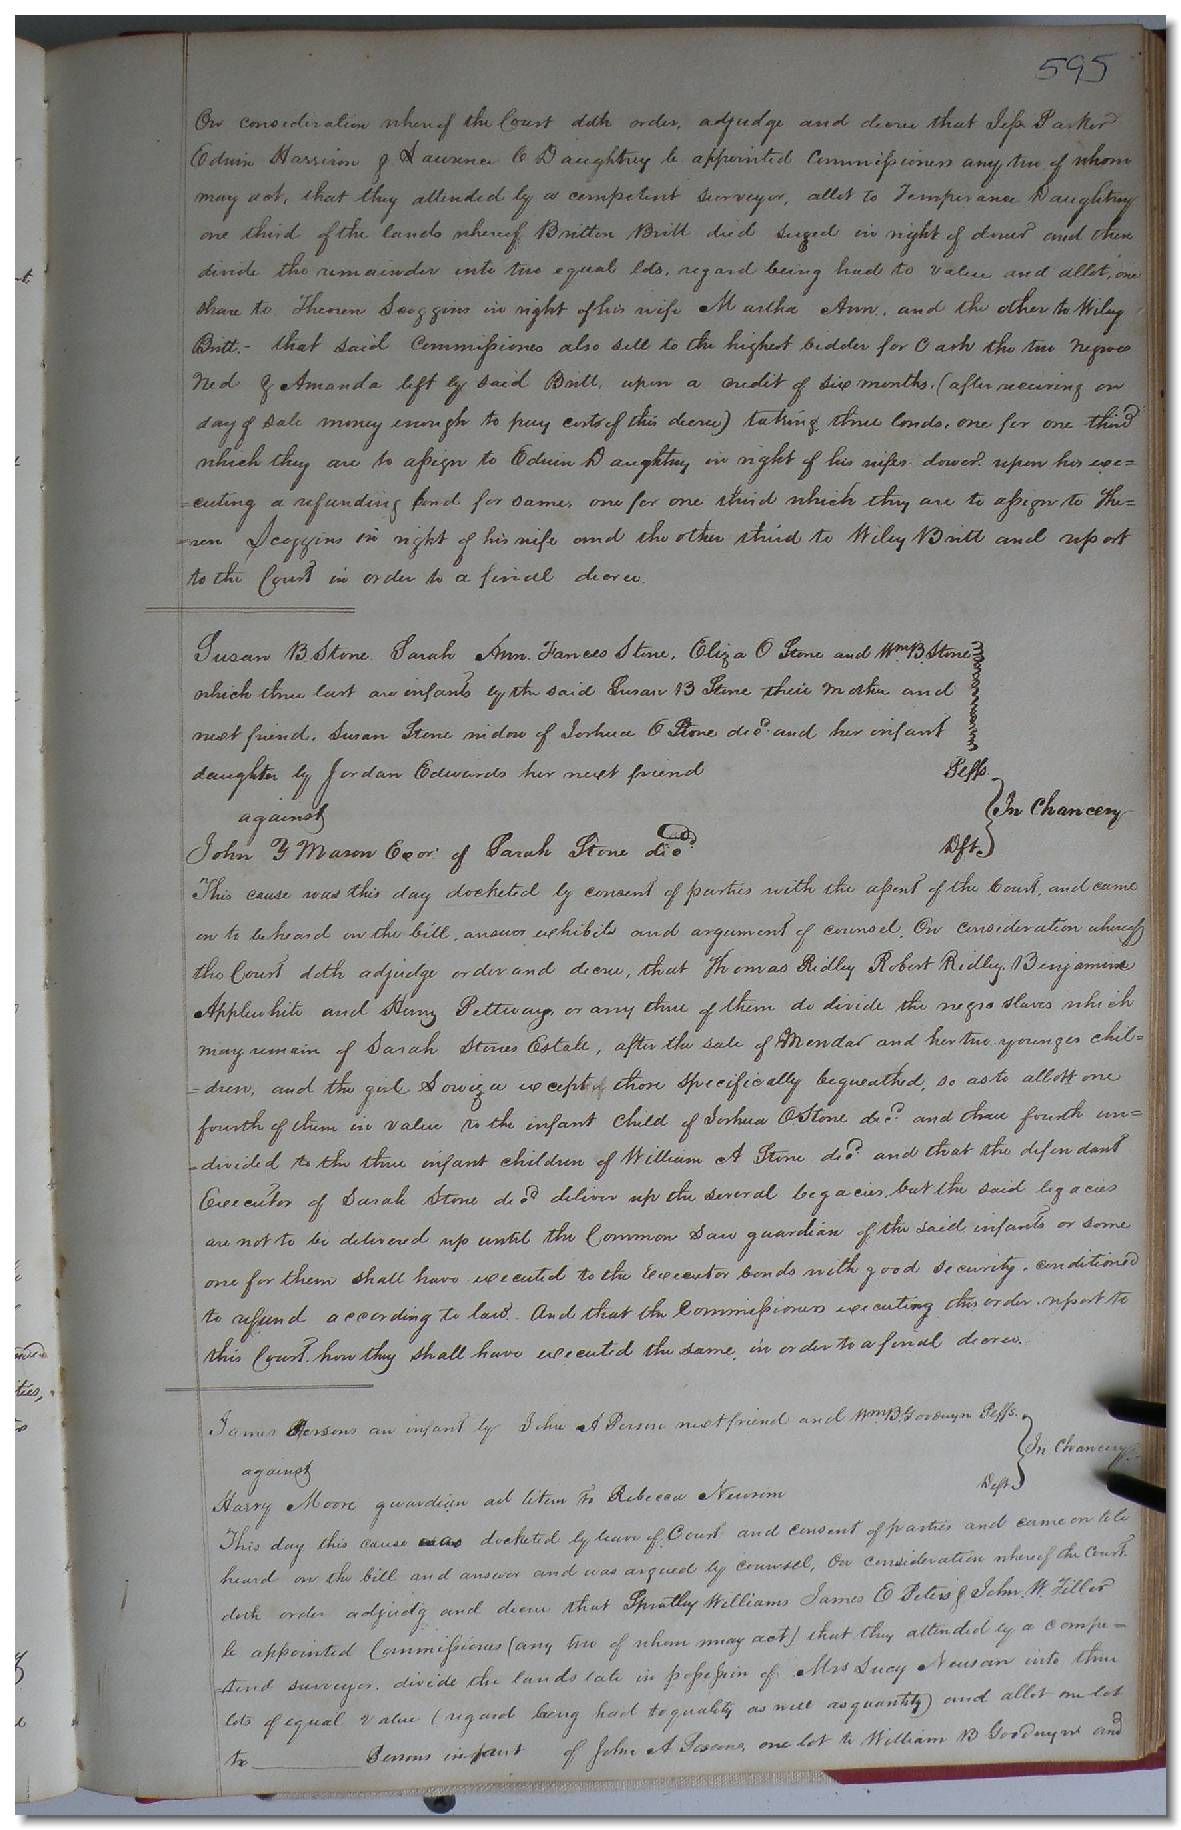 595
On consideration whereof the Court doth order, adjudge and decree that Jesse Parker
Edwin Harrison & Laurence C Daughtrey be appointed Commissioners any two of whom
may act, that they attended by a competent surveyor, allot to Temperance Daughtrey
one third of the lands whereof Britton Britt died seized in right of dower and then
divide the remainder into two equal lots, regard being had to value and allot, one
share to Theren Scoggins in right of his wife Martha Ann, and the other to Wiley
Britt.- that said Commissiones also sell to the highest bidder for Cash the two negroes
Ned & Amanda left by said Britt, upon a credit of six months. (after receiving on
day of sale money enough to pay costs of this decree) taking three bonds, one for one third
which they are to assign to Edwin Daughtrey in right of his wifes dower upon his exe=
=cuting a refunding bond for same, one for one third which they are to assign to The=
=ren Scoggins in right of his wife and the other third to Wiley Britt and report
to the Court in order to a final decree.
Susan B. Stone Sarah Ann Fances Stone, Eliza O Stone and Wm B. Stone
which three last are infants by the said Susan B Stone their mother and
next friend, Susan Stone widow of Joshua C Stone decd and her infant
daughter by Jordan Edwards her next friend Peffs.
against In Chancery
John Y Mason Exor. of Sarah Stone decd Dft.
This cause was this day docketed by consent of parties with the assent of the Court, and came
on to be heard on the bill, answer exhibits and argument of counsel, On consideration whereof
the Court doth adjudge order and decree, that Thomas Ridley Robert Ridley, Benjamin
Applewhite and Henry Pettway, or any three of them do divide the negro slaves which
may remain of Sarah Stones Estate, after the sale of Mendar and her two younges chil=
=dren, and the girl Lowiza except those specifically bequeathed, so as to allott one
fourth of them in value to the infant child of Joshua C Stone decd and three fourth un=
=divided to the three infant children of William A Stone decd and that the defendant
Executor of Sarah Stone decd deliver up the several legacies, but the said legacies
are not to be delivered up until the Common Law guardian of the said infants or some
one for them shall have executed to the Executor bonds with good security, conditioned
to refund according to law. And that the Commissioners executing this order, report to
this Court how they shall have executed the same, in order to a final decree.
James Persons an infant by John A Person next friend and Wm B. Goodwyn Peffs.
against In Chancery.
Harry Moore guardian ad litem to Rebecca Newsom Deft.
This day this cause was docketed by leave of Court and consent of parties and came on to be
heard on the bill and answer and was argued by counsel, On consideration whereof the Court
doth order adjudg and decree that Spratley Williams James E Peters & John W. Filler
be appointed Commissiones (any two of whom may act) that they attended by a compe=
=tend surveyor, divide the lands late in possession of Mrs Lucy Newsom into three
lots of equal value (regard being had to quality as well as quantity) and allot one lot
to ________ Persons infant of John A Persons, one lot to William B Goodwynn and